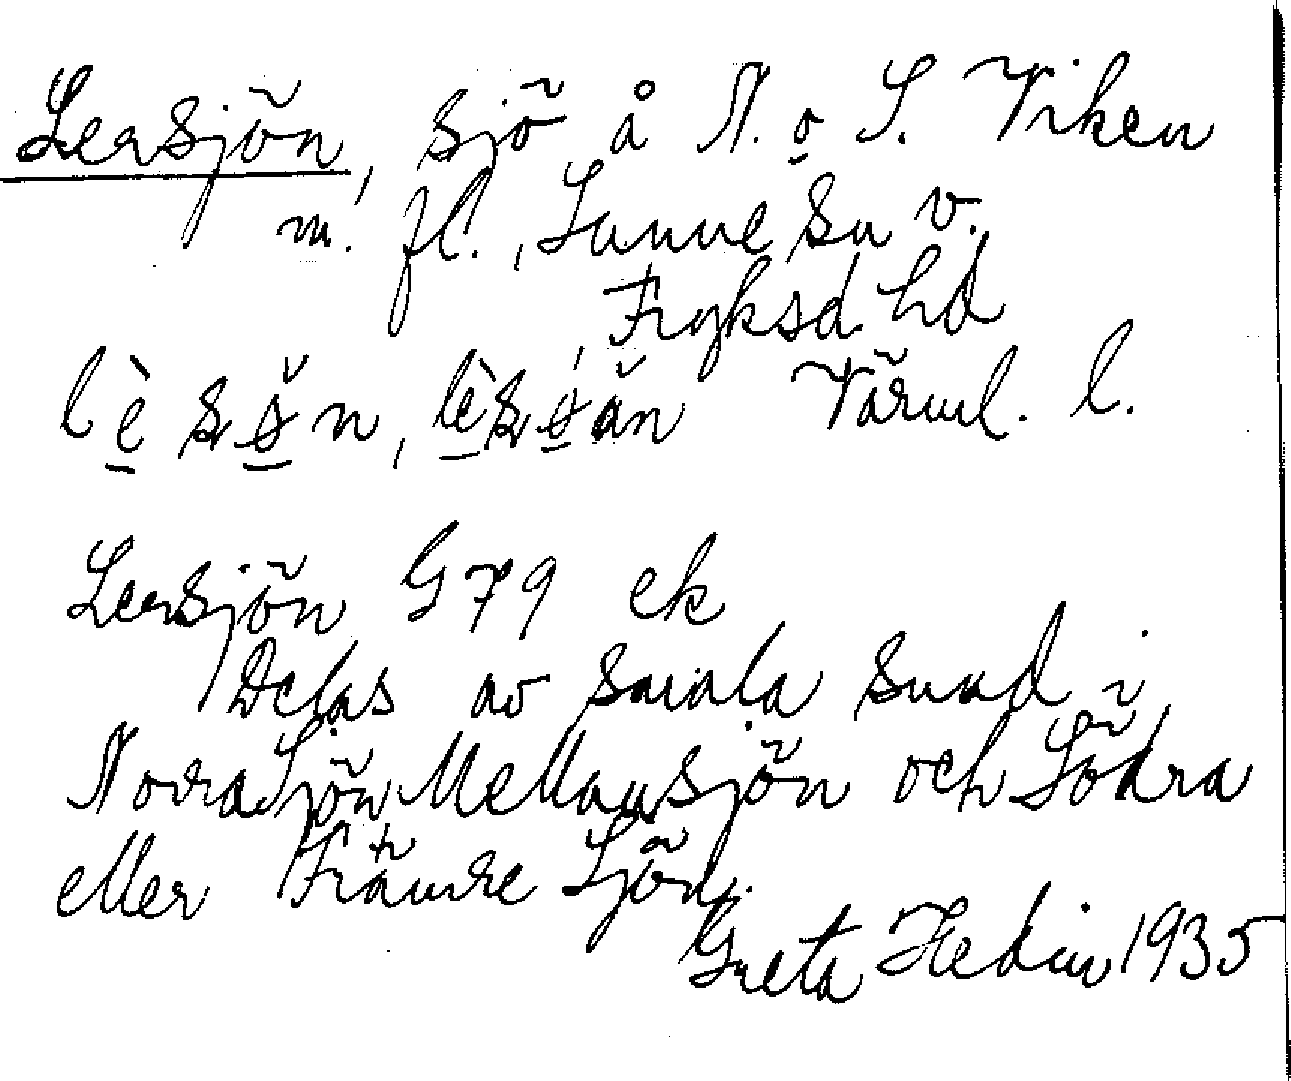 Lersjön, sjö å N. o S. Viken
m. fl., Sunne sn V.
Fryksd. hd
Värml. l.
Lersjön G 79 ek
Delas av smala sund i
Norra Sjön, Mellansjön och Södra
eller Främre Sjön.
Greta Hedin 1935